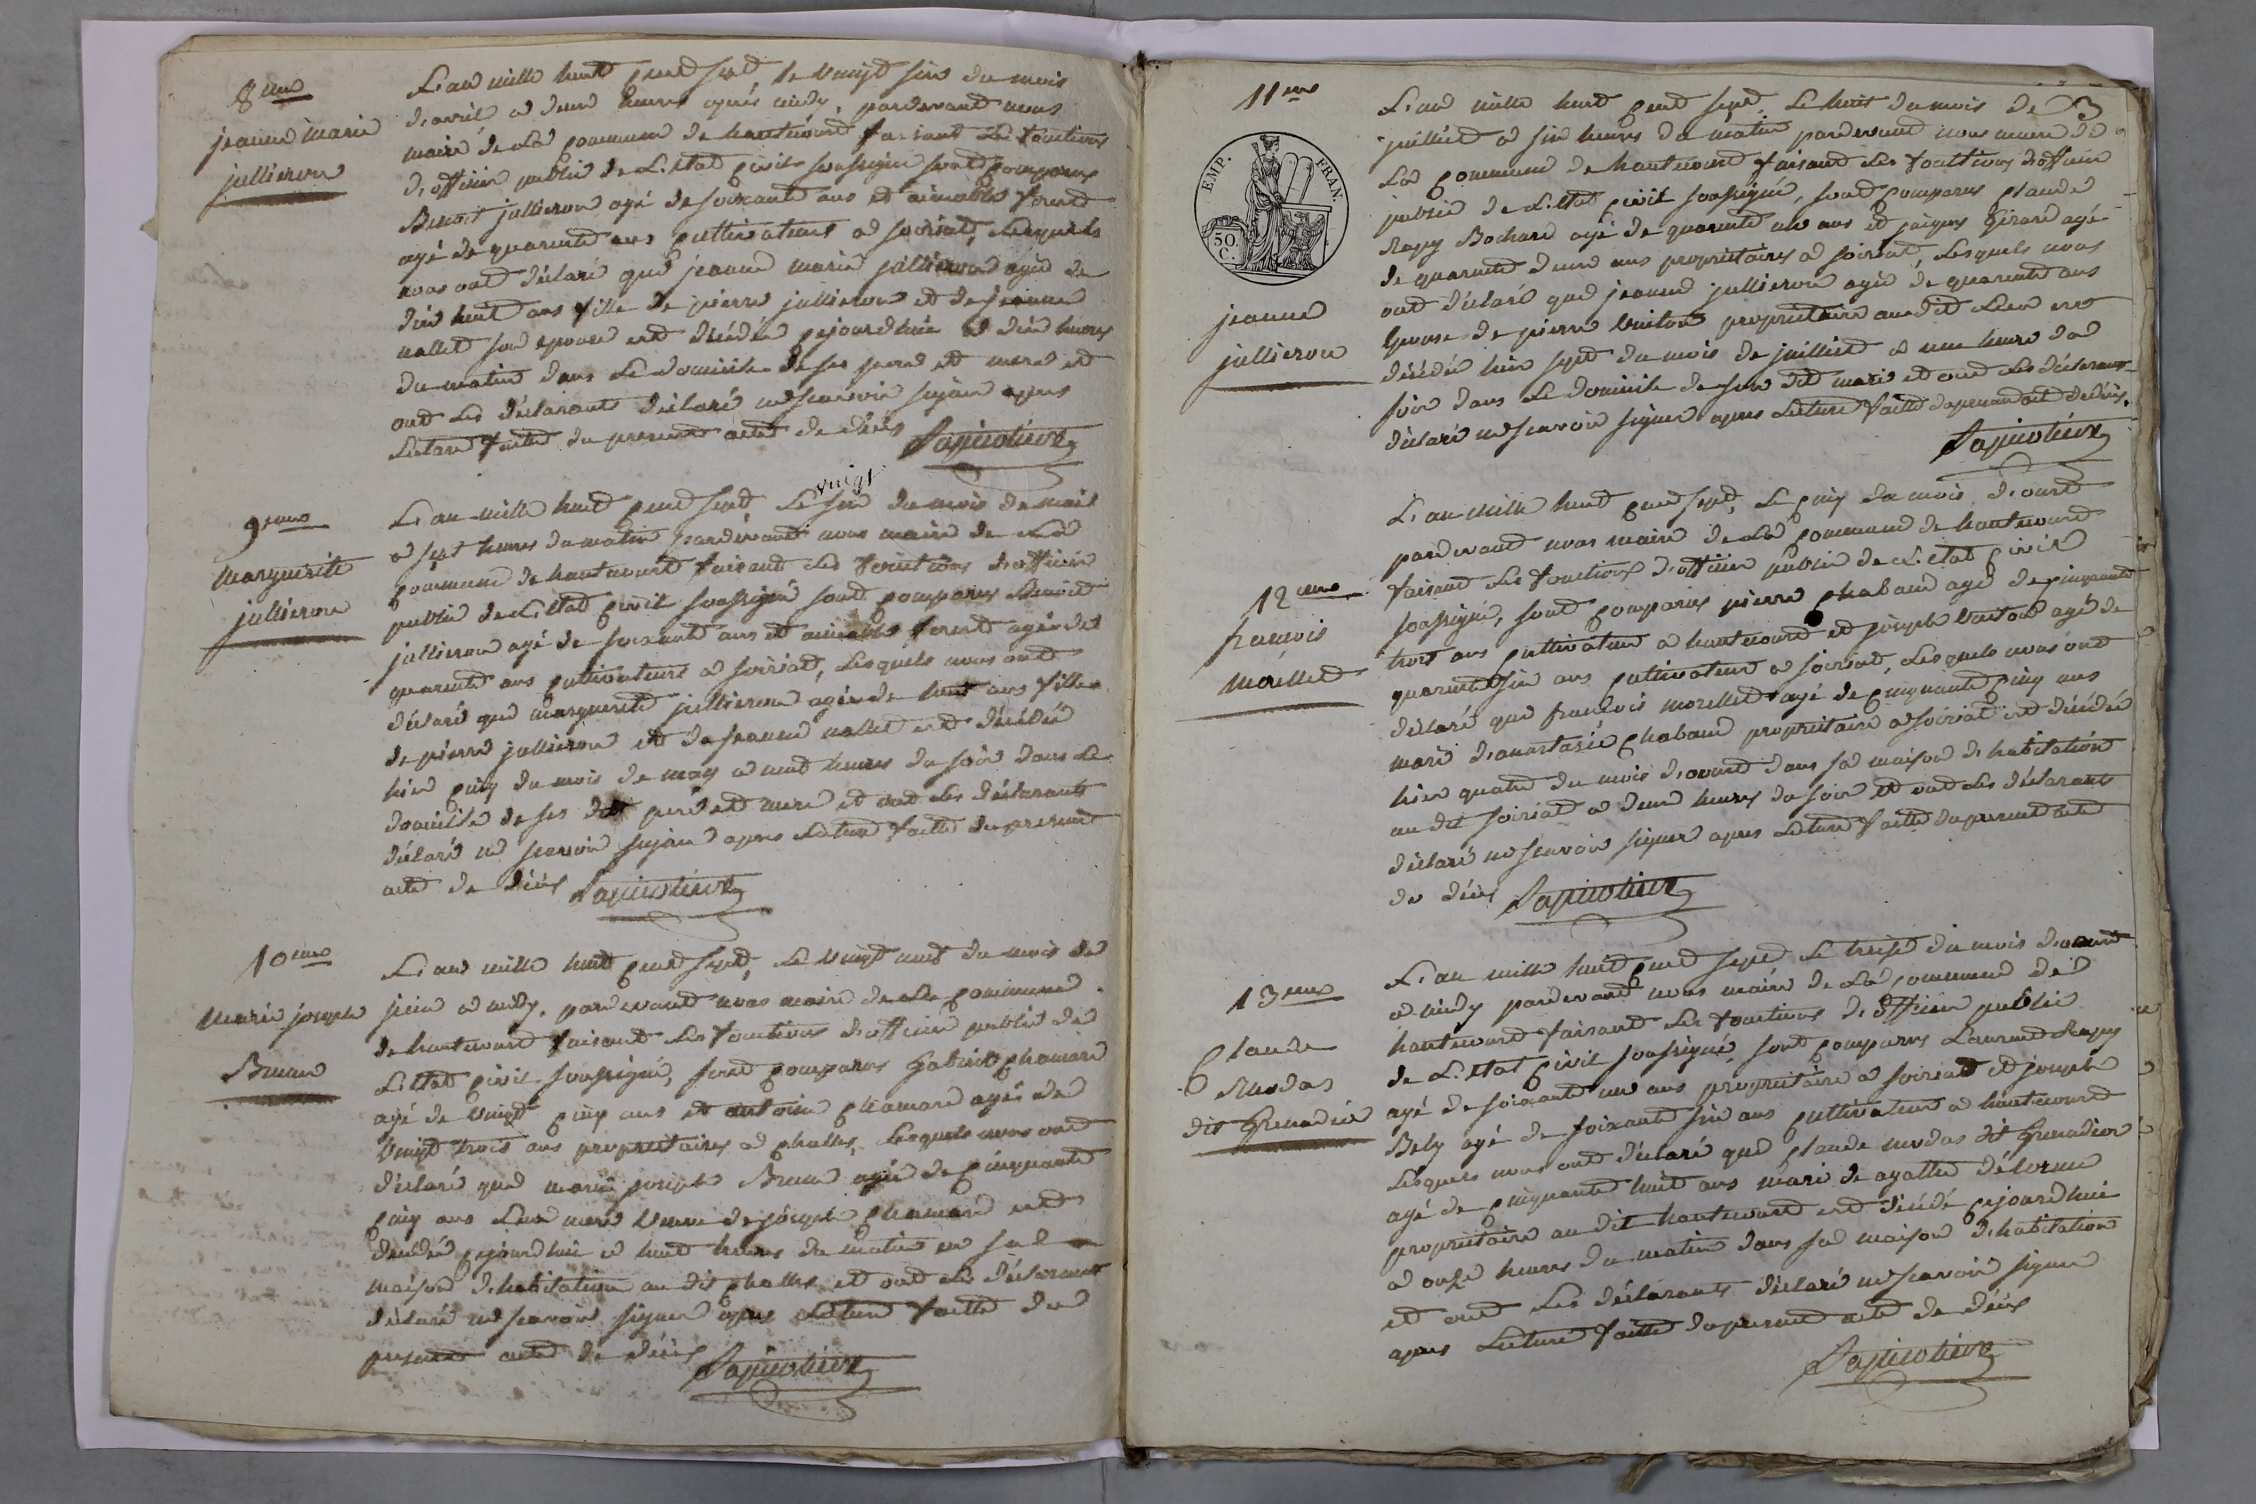 8eme
jeanne marie
jullieron
L'an mille huit cent sept, le vingt six du mois
d'avril a deux heures après midy, pardevant nous
maire de la commune de hautecourt faisant les fonctions
d'officier public de l'Etat civil soussigné sont comparus
Benoit jullieron agé de soixante ans et aimable forest
agé de quarente ans cultivateurs a soiriat, lesquels
nous ont déclaré que jeanne marie jullieron agée de
dix huit ans fille de pierre jullieron et de jeanne
nallet son epouse est décédée cejourdhuie a dix heures
du matin dans le domicile de ses pere et mere et
ont les déclarants déclaré ne scavoir signer apres
lecture faitte du present acte de décès
9eme
marguerite
jullieron
L'an mille huit cent sept le vingt six du mois de mai
a sept heures du matin pardevant nous maire de la
commune de hautecourt faisant les fonctions d'officier
public de l'Etat civil soussigné sont comparus Benoit
jullieron agé de soixante ans et aimable forest agé de
quarente ans cultivateurs a soiriat, lesquels nous ont
déclaré que marguerite jullieron agée de huit ans fille
de pierre jullieron et de jeanne nallet est décédée
hier cinq du mois de may a neuf heures du soir dans le
domicile de ses dit pere et mere et ont les déclarants
déclaré ne scavoir signer apres lecture faitte du present
acte de décès
10eme
Marie joseph
Brun
L'an mille huit cent sept, le vingt neuf du mois de
juin a midy, pardevant nous maire de la commune
de hautecourt faisant les fonctions d'officier public de
l'Etat civil soussigné, sont comparus Gabriel Chamard
agé de vingt cinq ans et antoine Chamard agé de
vingt trois ans proprietaires a challes, lesquels nous ont
déclaré que marie joseph Brun agée de cinquante
cinq ans leur mere veuve de joseph Chamard est
décédée cejourdhuie a huit heures du matin en sa
maison d'habitation au dit challes et ont les déclarants
déclaré ne scavoir signer apres lecture faitte du
present acte de décès
11eme
EMP. FRAN.
50.
C.
jeanne
jullieron
L'an mille huit cent sept, Le huit du mois de
juilliet a six heures du matin pardevant nous maire de
la commune de hautecourt faisant les fonctions d'officier
public de l'Etat civil soussigné, sont comparus claude
Ragey Bochard agé de quarente un ans et jacques Girard agé
de quarente deux ans proprietaires a soiriat, lesquels nous
ont déclaré que jeanne jullieron agée de quarente ans
epouse de pierre vuiton proprietaire au dit lieu est
décédée hier sept du mois de juilliet a une heure du
soir dans le domicile de son dit mari et ont les déclarants
déclaré ne scavoir signer apres lecture faitte du present acte de décès.
12eme
francois
morellet
L'an mille huit cent sept, le cinq du mois d'oust
pardevant nous maire de la commune de hautecourt
faisant les fonctions d'officier public de l'Etat civil
soussigné, sont comparus pierre chaband agé de cinquante
trois ans cultivateur a hautecourt et joseph vuiton agé de
quarente six ans cultivateur a soiriat, lesquels nous ont
déclaré que francois morellet agé de cinquante cinq ans
mari d'anastasie chaband proprietaire a soiriat est décédé
hier quatre du mois d'oust dans sa maison d'habitation
au dit soiriat a deux heures du soir et ont les déclarants
déclaré ne scavoir signer apres lecture faitte du present acte
de décès
13eme
Claude
nudas
dit Grenadier
L'an mille huit cent sept le treise du mois d'oust
a midy pardevant nous maire de la commune de
hautecourt faisant les fonctions d'officier public
de l'Etat civil soussigné sont comparus Laurent Ragey
agé de soixante un ans proprietaire a soiriat et joseph
Bely agé de soixante six ans cultivateur a hautecourt
lesquels nous ont déclaré que claude nudas dit Grenadier
agé de cinquante huit ans mari de agatte delorme
proprietaire au dit hautecourt est décédé cejourdhuie
a onze heures du matin dans sa maison d'habitation
et ont les déclarants déclaré ne scavoir signer
apres lecture faitte du present acte de décès